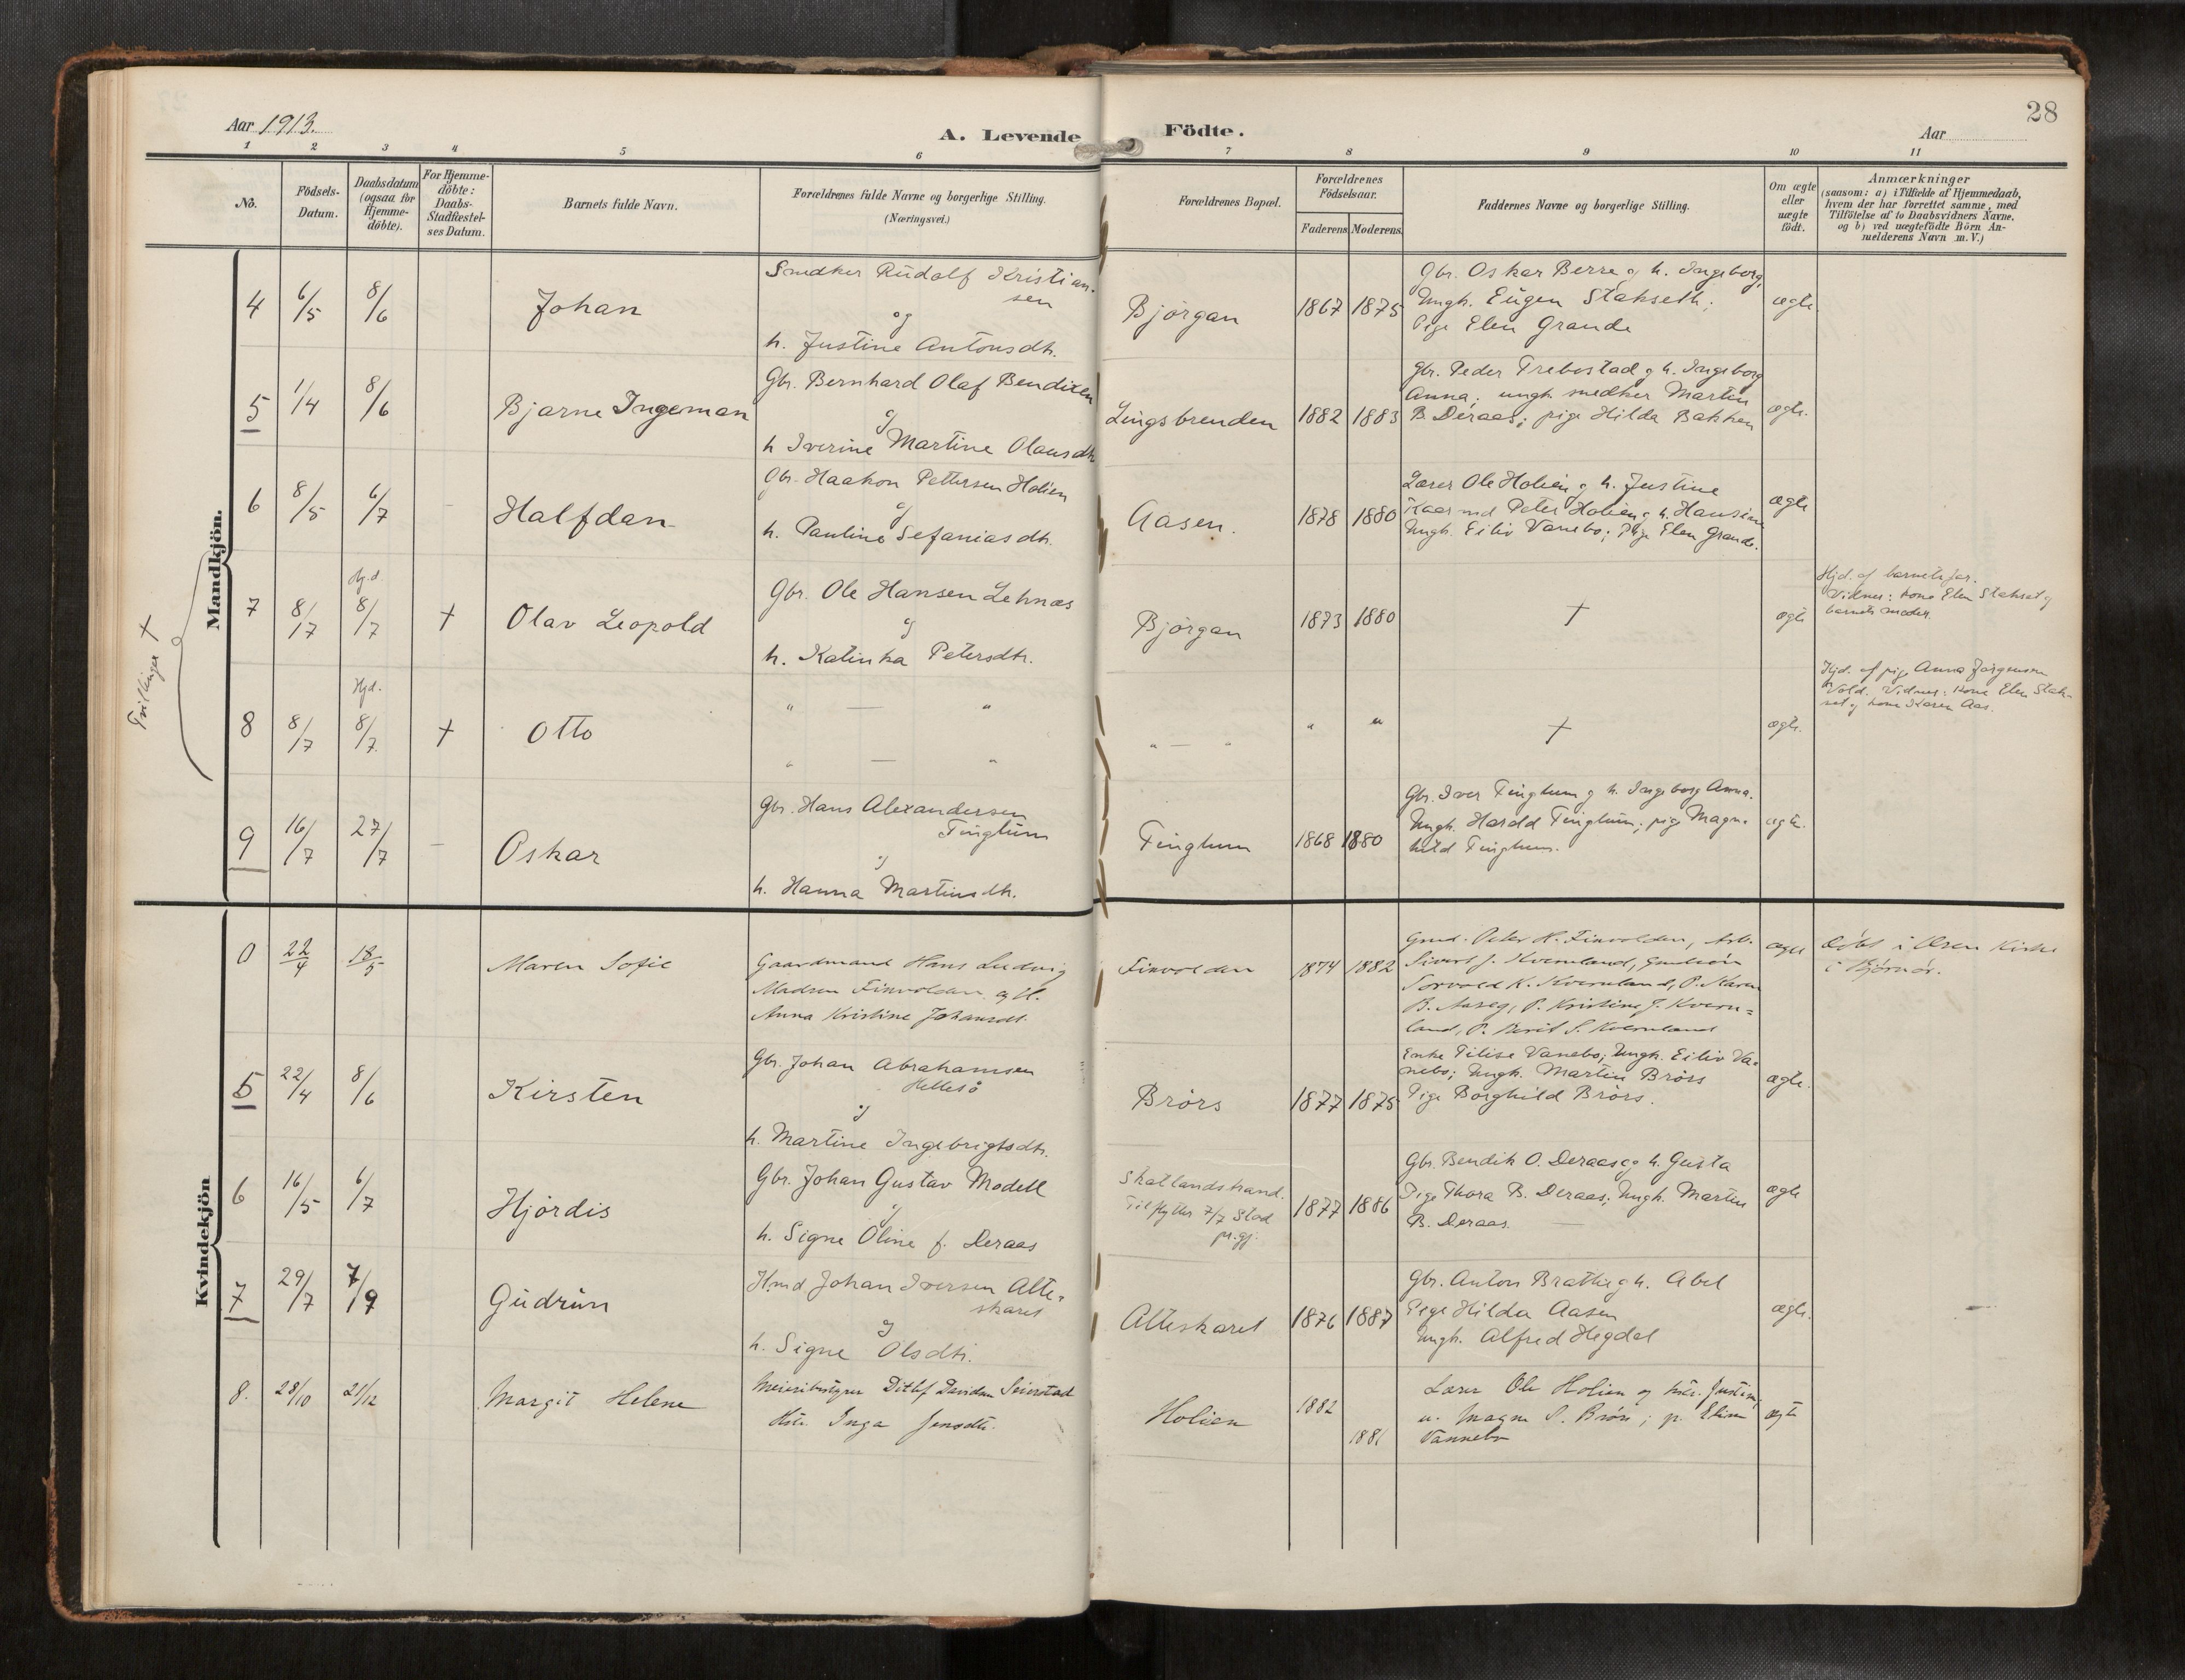 28
Aar 1913.
A. Levende Födte.
Aar
1 2 3 4 5 6 7 8 9 10 11
No.
Födsels-
Datum.
Daabsdatum
(ogsaa for
Hjemme-
döbte).
For Hjemme-
döbte:
Daabs-
Stadfæstel-
ses Datum.
Barnets fulde Navn.
Forældrenes fulde Navne og borgerlige Stilling.
(Næringsvei.)
Forældrenes Bopæl.
Forældrenes
Födselsaar.
Faderens. Moderens.
Faddernes Navne og borgerlige Stilling.
Om ægte
eller
uægte
födt.
Anmærkninger
(saasom: a) i Tilfælde af Hjemmedaab,
hvem der har forrettet samme, med
Tilföielse af to Daabsvidners Navne,
og b) ved uægtefödte Börn An-
melderens Navn m. V.)
Mandkjön.
4 6/5 8/6 Johan
Smedker Rudolf Kristian-
sen
og
h. Justine Antonsdtr.
Bjørgan 1867 1875
Gbr. Oskar Berre og h. Ingeborg,
Ungk. Eugen Stakseth;
Pige Elen Grande
ægte
5 1/4 8/6 Bjarne Ingeman
Gbr. Bernhard Olaf Bendixen
og
h Iverine Martine Olausdtr
Lingsbrenden 1882 1883
Gbr. Peder Trebostad og h. Ingeborg
Anna; ungk. smedker Martin
B. Deraas; pige Hilda Bakken
ægte.
6 8/5 6/7 Halfdan
Gbr. Haakon Pettersen Holien
og
h. Pauline Sefaniasdtr.
Aasen. 1878 1880
Lærer Ole Holien og h. Justine
Kaarmd Peter Holien og h. Hansine
Ungk. Eiliv Vanebo; Pige Elen Grande.
ægte
Tvillinger +
7 8/7 Hj.d. 8/7 + Olav Leopold
Gbr. Ole Hansen Lehnæs
og
h. Katinka Petersdtr.
Bjørgan 1873 1880 + ægte
Hjd. af barnets far.
Vidner: kone Elen Stakset og
barnets moder.
8 8/7 Hjd. 8/7. + Otto
" — "
" — "
" — " " " + ægte.
Hjd. af pige Anna Jørgensen
Vold. Vidner: kone Elen Stak-
set og kone Karen Aas.
9 16/7 27/7 Oskar
Gbr. Hans Alexandersen
Finglum
og
h. Hanna Martinsdtr.
Finglum 1868 1880
Gbr. Iver Finglum og h. Ingeborg Anna.
Ungk. Harald Finglum; pige Magn-
hild Finglum.
ægte.
Kvindekjön
0 22/4 18/5 Maren Sofie
Gaardmand Hans Ludvig
Madsen Finvolden og H.
Anna Kristine Johansdt.
Finvolden 1874 1882
Gmd. Peter H. Finvolden, Arb.
Sivert J. Kvernland, Gmdsøn
Torvald K. Kvernland, P. Karen
B. Aaseg, P. Kristine J. Kvern=
land, P. Berit S. Kvernland
ægte
Døbt i Osen Kirke
i Bjørnør.
5 22/4 8/6 Kirsten
Gbr. Johan Abrahamsen
Hellesø
og
h. Martine Ingebrigtsdtr.
Brørs 1877 1875
Enke Tilise Vanebo; Ungk. Eiliv Va-
nebo; Ungk. Martin Brørs
Pige Borghild Brørs.
ægte.
6 16/5 6/7 Hjørdis
Gbr. Johan Gustav Modell
og
h. Signe Oline f. Deraas
Skatlandstrand.
Tilflytter 7/7 Stod
pr.gj.
1877 1886
Gbr. Bendik O. Deraas og h. Gusta
Pige Thora B. Deraas; Ungk. Martin
B. Deraas.
ægte
7 29/7 7/9 Gudrun
H.md Johan Iversen Alte-
skaret
og
h. Signe Olsdtr.
Alteskaret 1876 1887
Gbr. Anton Bratli og h. Abel
Pige Hilda Aasen
Ungk. Alfred Hegdal
ægte.
8. 28/10 21/12 Margit Helene
Meieribestyrer Ditlef Davidsen Seierstad
Hstr. Inga Jensdtr.
Holien 1882 1881
Lærer Ole Holien og hstr. Justine,
u. Magne P. Brørs; p. Elise
Vannebo
ægte